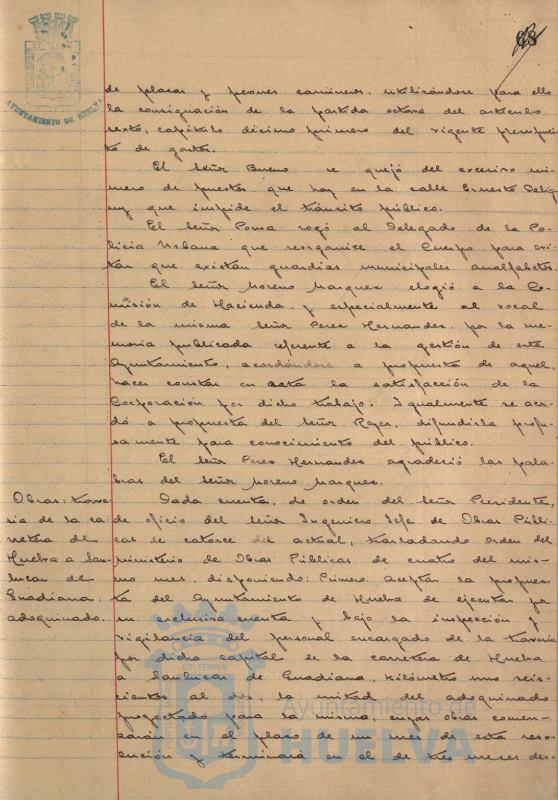 83
AYUNTAMIENTO DE HUELVA
de placas y peones camineros, utilizándose para ello
la consignación de la partida octava del artículo
sexto, capítulo décimo primero del vigente presupues
to de gastos.
El Señor Bueno se quejó del excesivo nú-
mero de puestos que hay en la calle Ernesto Delig
ny que impide el tránsito público.
El Señor Ponsa rogó al Delegado de la Po-
licia Urbana que reorganice el Cuerpo para evi
tar que existan guardias municipales analfabetos
El Señor Moreno Marquez elogió a la Co-
misión de Hacienda y especialmente al vocal
de la misma Señor Perez Hernandez por la me-
moria publicada referente a la gestión de este
Ayuntamiento, acordándose a propuesta de aquel,
hacer constar en acta la satisfacción de la
Corporación por dicho trabajo. Igualmente se acor
dó a propuesta del Señor difundirla profu-
samente para conocimiento del público.
El Señor Perez Hernandez agradeció las pala
bras del Señor Moreno Marquez.
Obras: trave
sia de la ca-
rretera de
Huelva a San-
lucar de
Guadiana:
adoquinado.
Dada cuenta, de orden del Señor Presidente,
de oficio del Señor Ingeniero Jefe de Obras Públi
cas de catorce del actual, trasladando orden del
ministerio de Obras Públicas de cuatro del mis-
mo mes, disponiendo: Primero. Aceptar la propues
ta del Ayuntamiento de Huelva de ejecutar por
su exclusiva cuenta y bajo la inspección y
vigilancia del personal encargado de la travesia
por dicha capital de la carretera de Huelva
a Sanlucar de Guadiana, kilómetro uno seis-
cientos al dos, la mitad del adoquinado
proyectado para la misma, cuyas obras comen-
zarán en el plazo de un mes de esta reso-
lución y terminará en el de tres meses des-
Ayuntamiento de
HUELVA